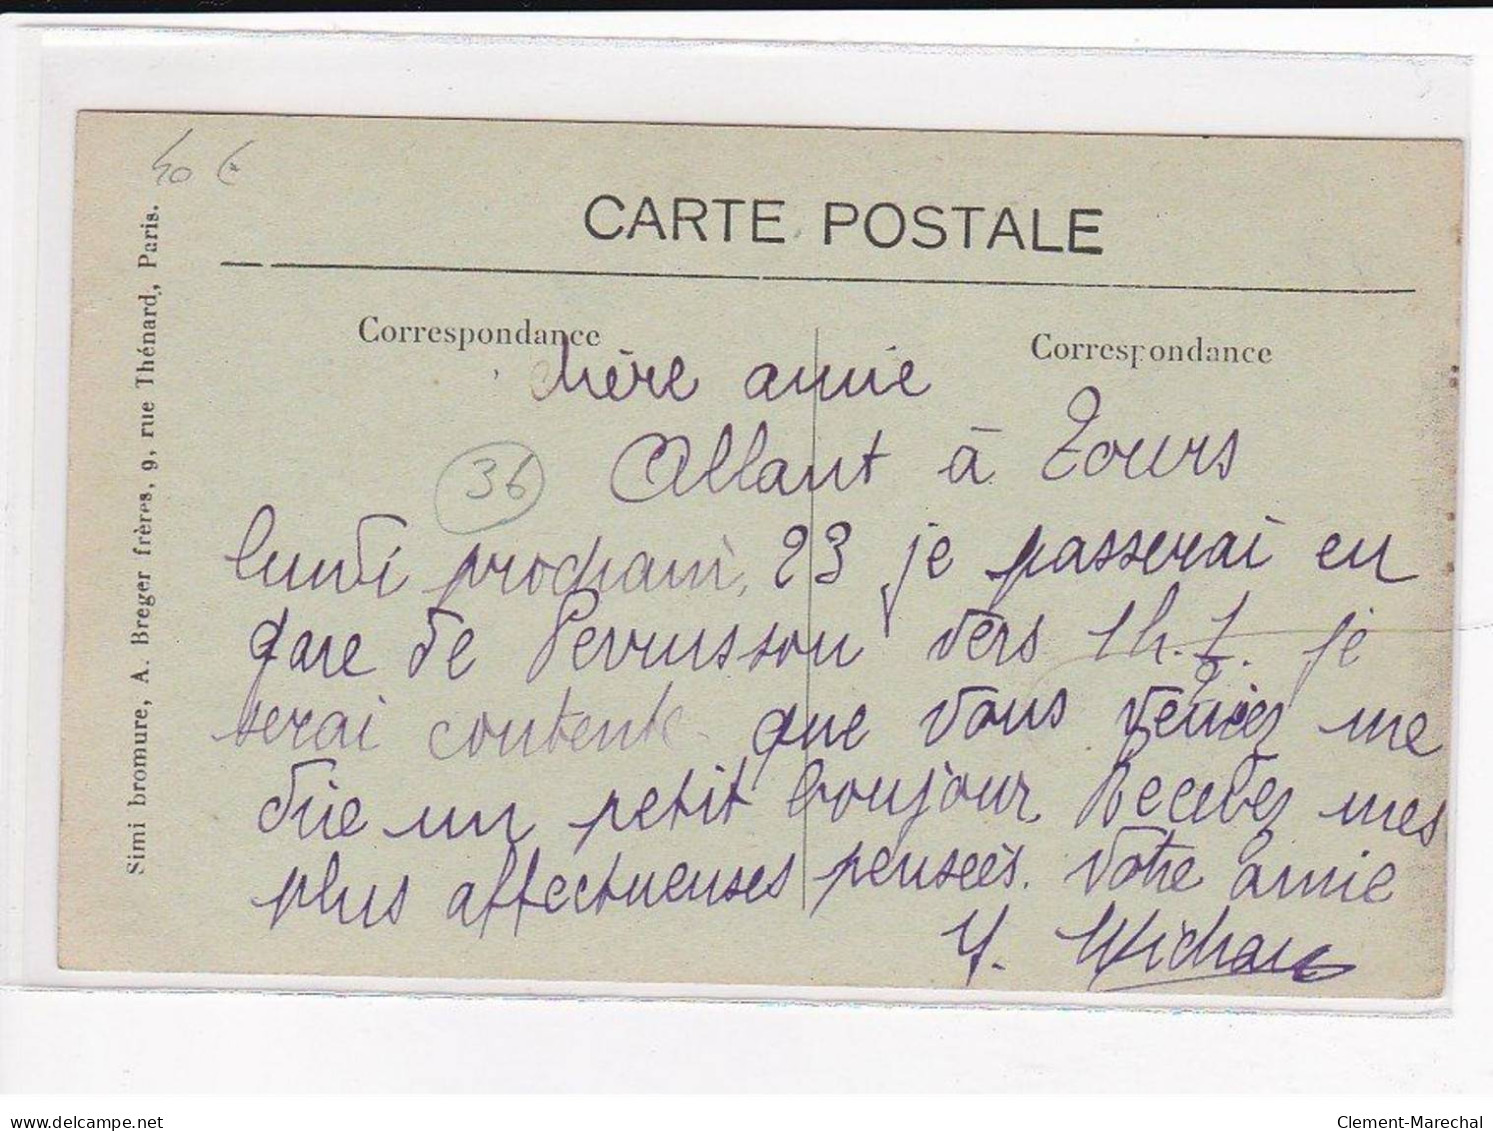 40 €
CARTE POSTALE
Correspondance
Correspondance
Simi bromure, A. Breger frères, 9, rue Thénard, Paris.
36
chère amie
Allant à Tours
lundi prochain, 23 je passerai en
gare de Perrusson vers 1h. je
serai contente que vous veniez me
dire un petit bonjour. Recevez mes
plus affectueuses pensées. Votre amie
Y.
delcampe.net
Clement-Marechal